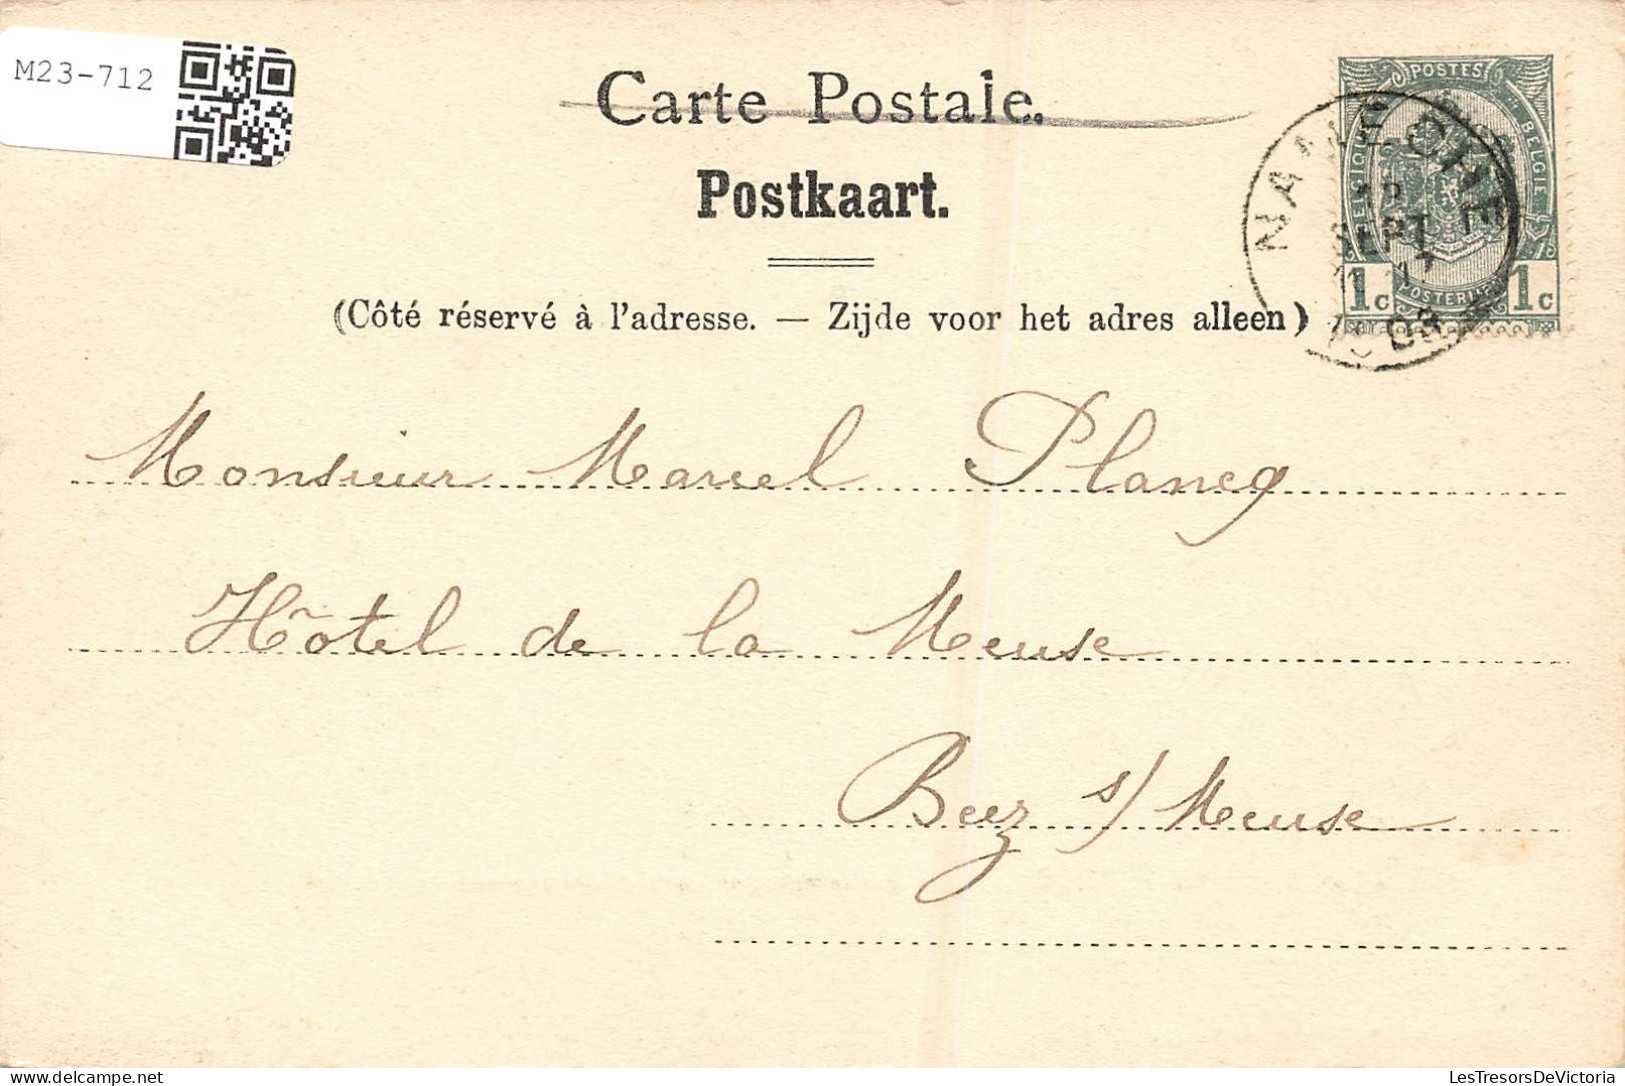 M23-712
Carte Postale.
Postkaart.
(Côté réservé à l'adresse. — Zijde voor het adres alleen)
POSTES
BELGIQUE
BELGIE
POSTERIJEN
1c 1c
SEPT
Monsieur Marcel Plancq
Hôtel de la Meuse
Beez s/ Meuse
LesTresorsDeVictoria